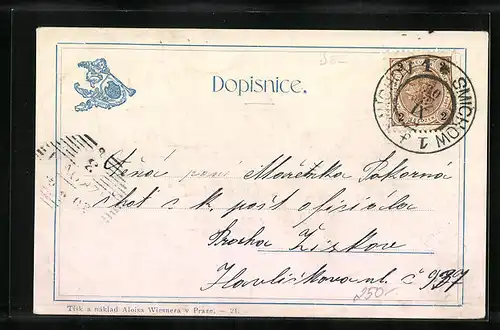 Dopisnice.
SMICHOW 1
SMÍCHOV 1
2 2
Ctěná paní Mařenka Pokorná
choť c. k. pošt. oficiála
Praha Žižkov
Havlíčkova ul. č. 937
250-
Tisk a náklad Aloisa Wiesnera v Praze. — 21.